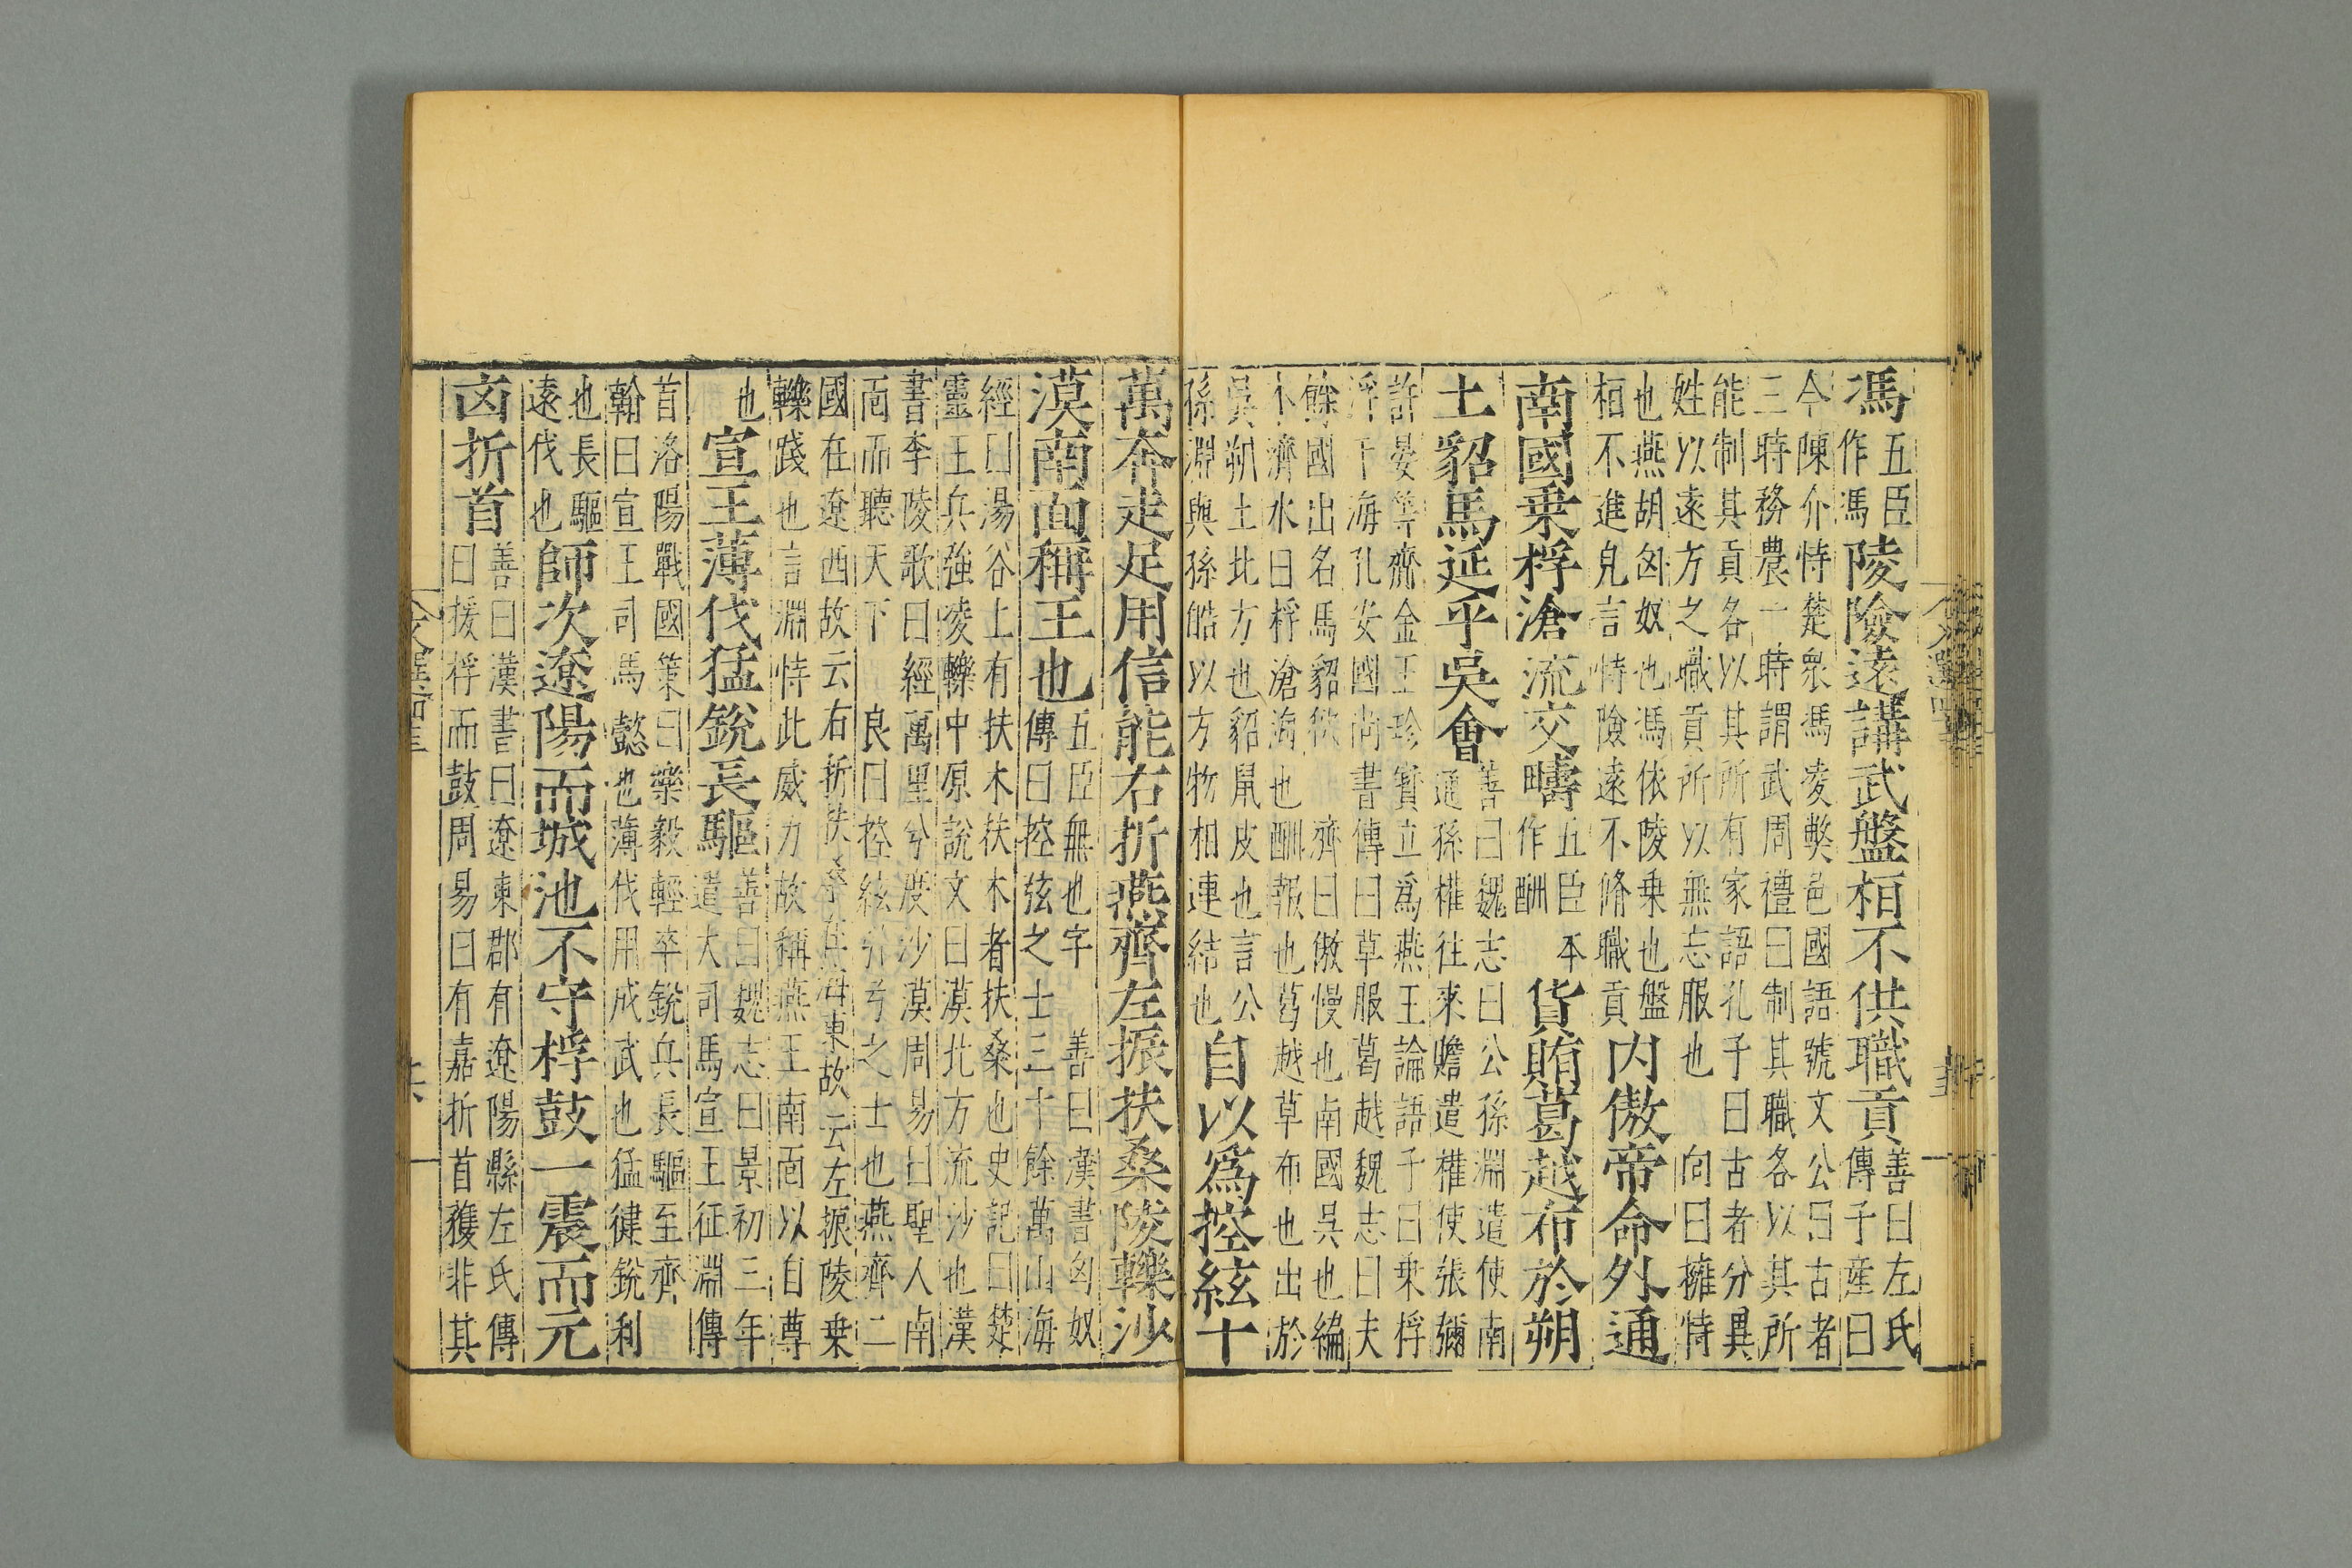 馮五臣作馮陵險遠講武盤桓不供職貢善曰左氏傳子産曰
今陳介恃楚衆馮凌弊邑國語號文公曰古者
三時務農一時謂武周禮曰制其職各以其所
能制其貢各以其所有家語孔子曰古者分異
姓以遠方之職貢所以無忘服也 向曰擁恃
也燕胡匈奴也馮依陵乗也盤
桓不進皃言恃險遠不脩職貢内傲帝命外通
南國乗桴滄流交疇五臣本作酬貨賄葛越布於朔
土貂馬延乎吳會善曰魏志曰公孫淵遣使南
通孫權往來贍遣權使張彌
許晏等齎金玉珍寳立爲燕王論語子曰乗桴
浮于海孔安國尚書傳曰草服葛越魏志曰夫
餘國出名馬貂狖 濟曰傲慢也南國吳也編
木濟水曰桴滄海也酬報也葛越草布也出於
吳朔土北方也貂鼠皮也言公
孫淵與孫皓以方物相連結也自以爲控絃十
萬奔走足用信能右折燕齊左振扶桑陵轢沙
漠南面稱王也五臣無也字 善曰漢書匈奴
傳曰控弦之士三十餘萬山海
經曰湯谷上有扶木扶木者扶桑也史記曰楚
靈王兵強凌轢中原說文曰漠北方流沙也漢
書李陵歌曰經萬里兮度沙漠周易曰聖人南
面而聽天下 良曰控絃引弓之士也燕齊二
國在遼西故云右折扶桑在海東故云左振陵乗
轢踐也言淵恃此威力故稱燕王南面以自尊
也宣王薄伐猛銳長驅善曰魏志曰景初三年
遣大司馬宣王征淵傳
首洛陽戰國策曰樂毅輕卒銳兵長驅至齊
翰曰宣王司馬懿也薄伐用成武也猛健銳利
也長驅
遠伐也師次遼陽而城池不守桴鼓一震而元
凶折首善曰漢書曰遼東郡有遼陽縣左氏傳
曰援桴而鼓周易曰有嘉折首獲非其